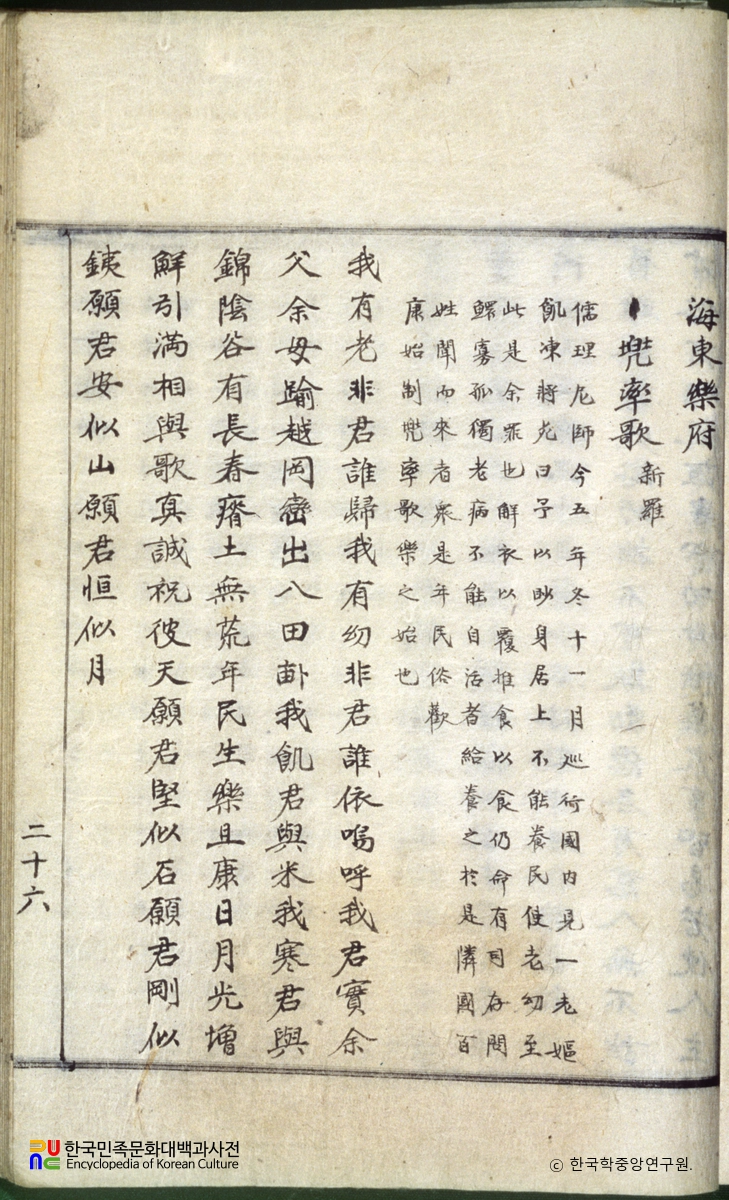 海東樂府
兜率歌 新羅
儒理尼師今五年冬十一月巡行國内見一老嫗
飢凍將死曰予以眇身居上不能養民使老幼至
此是余罪也解衣以覆推食以食仍命有司存問
鰥寡孤獨老病不能自活者給養之於是隣國百
姓聞而來者衆是年民俗歡
康始制兜率歌歌樂之始也
我有老非君誰歸我有幼非君誰依嗚呼我君實余
父余母踰越岡巒出入田 我飢君與米我寒君與
錦陰谷有長春瘠土無荒年民生樂且康日月光增
鮮引滿相與歌真誠祝彼天願君堅似石願君剛似
銕願君安似山願君恒似月
二十六
한국민족문화대백과사전
Encyclopedia of Korean Culture
ⓒ 한국학중앙연구원.